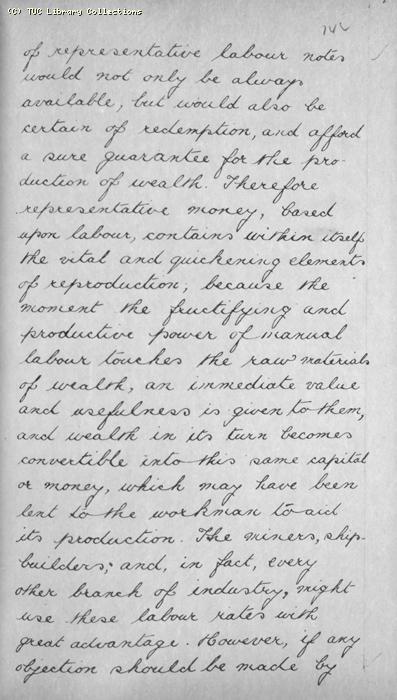 (C) TUC Library Collections
of representative labour notes
would not only be always
available, but would also be
certain of redemption, and afford
a sure guarantee for the pro-
duction of wealth. Therefore
representative money, based
upon labour, contains within itself
the vital and quickening elements
of reproduction; because the
moment the fructifying and
productive power of manual
labour touches the raw materials
of wealth, an immediate value
and usefulness is given to them,
and wealth in its turn becomes
convertible into this same capital
or money, which may have been
lent to the workman to aid
its production. The miners, ship-
builders; and, in fact, every
other branch of industry, might
use these labour rates with
great advantage. However, if any
objection should be made by